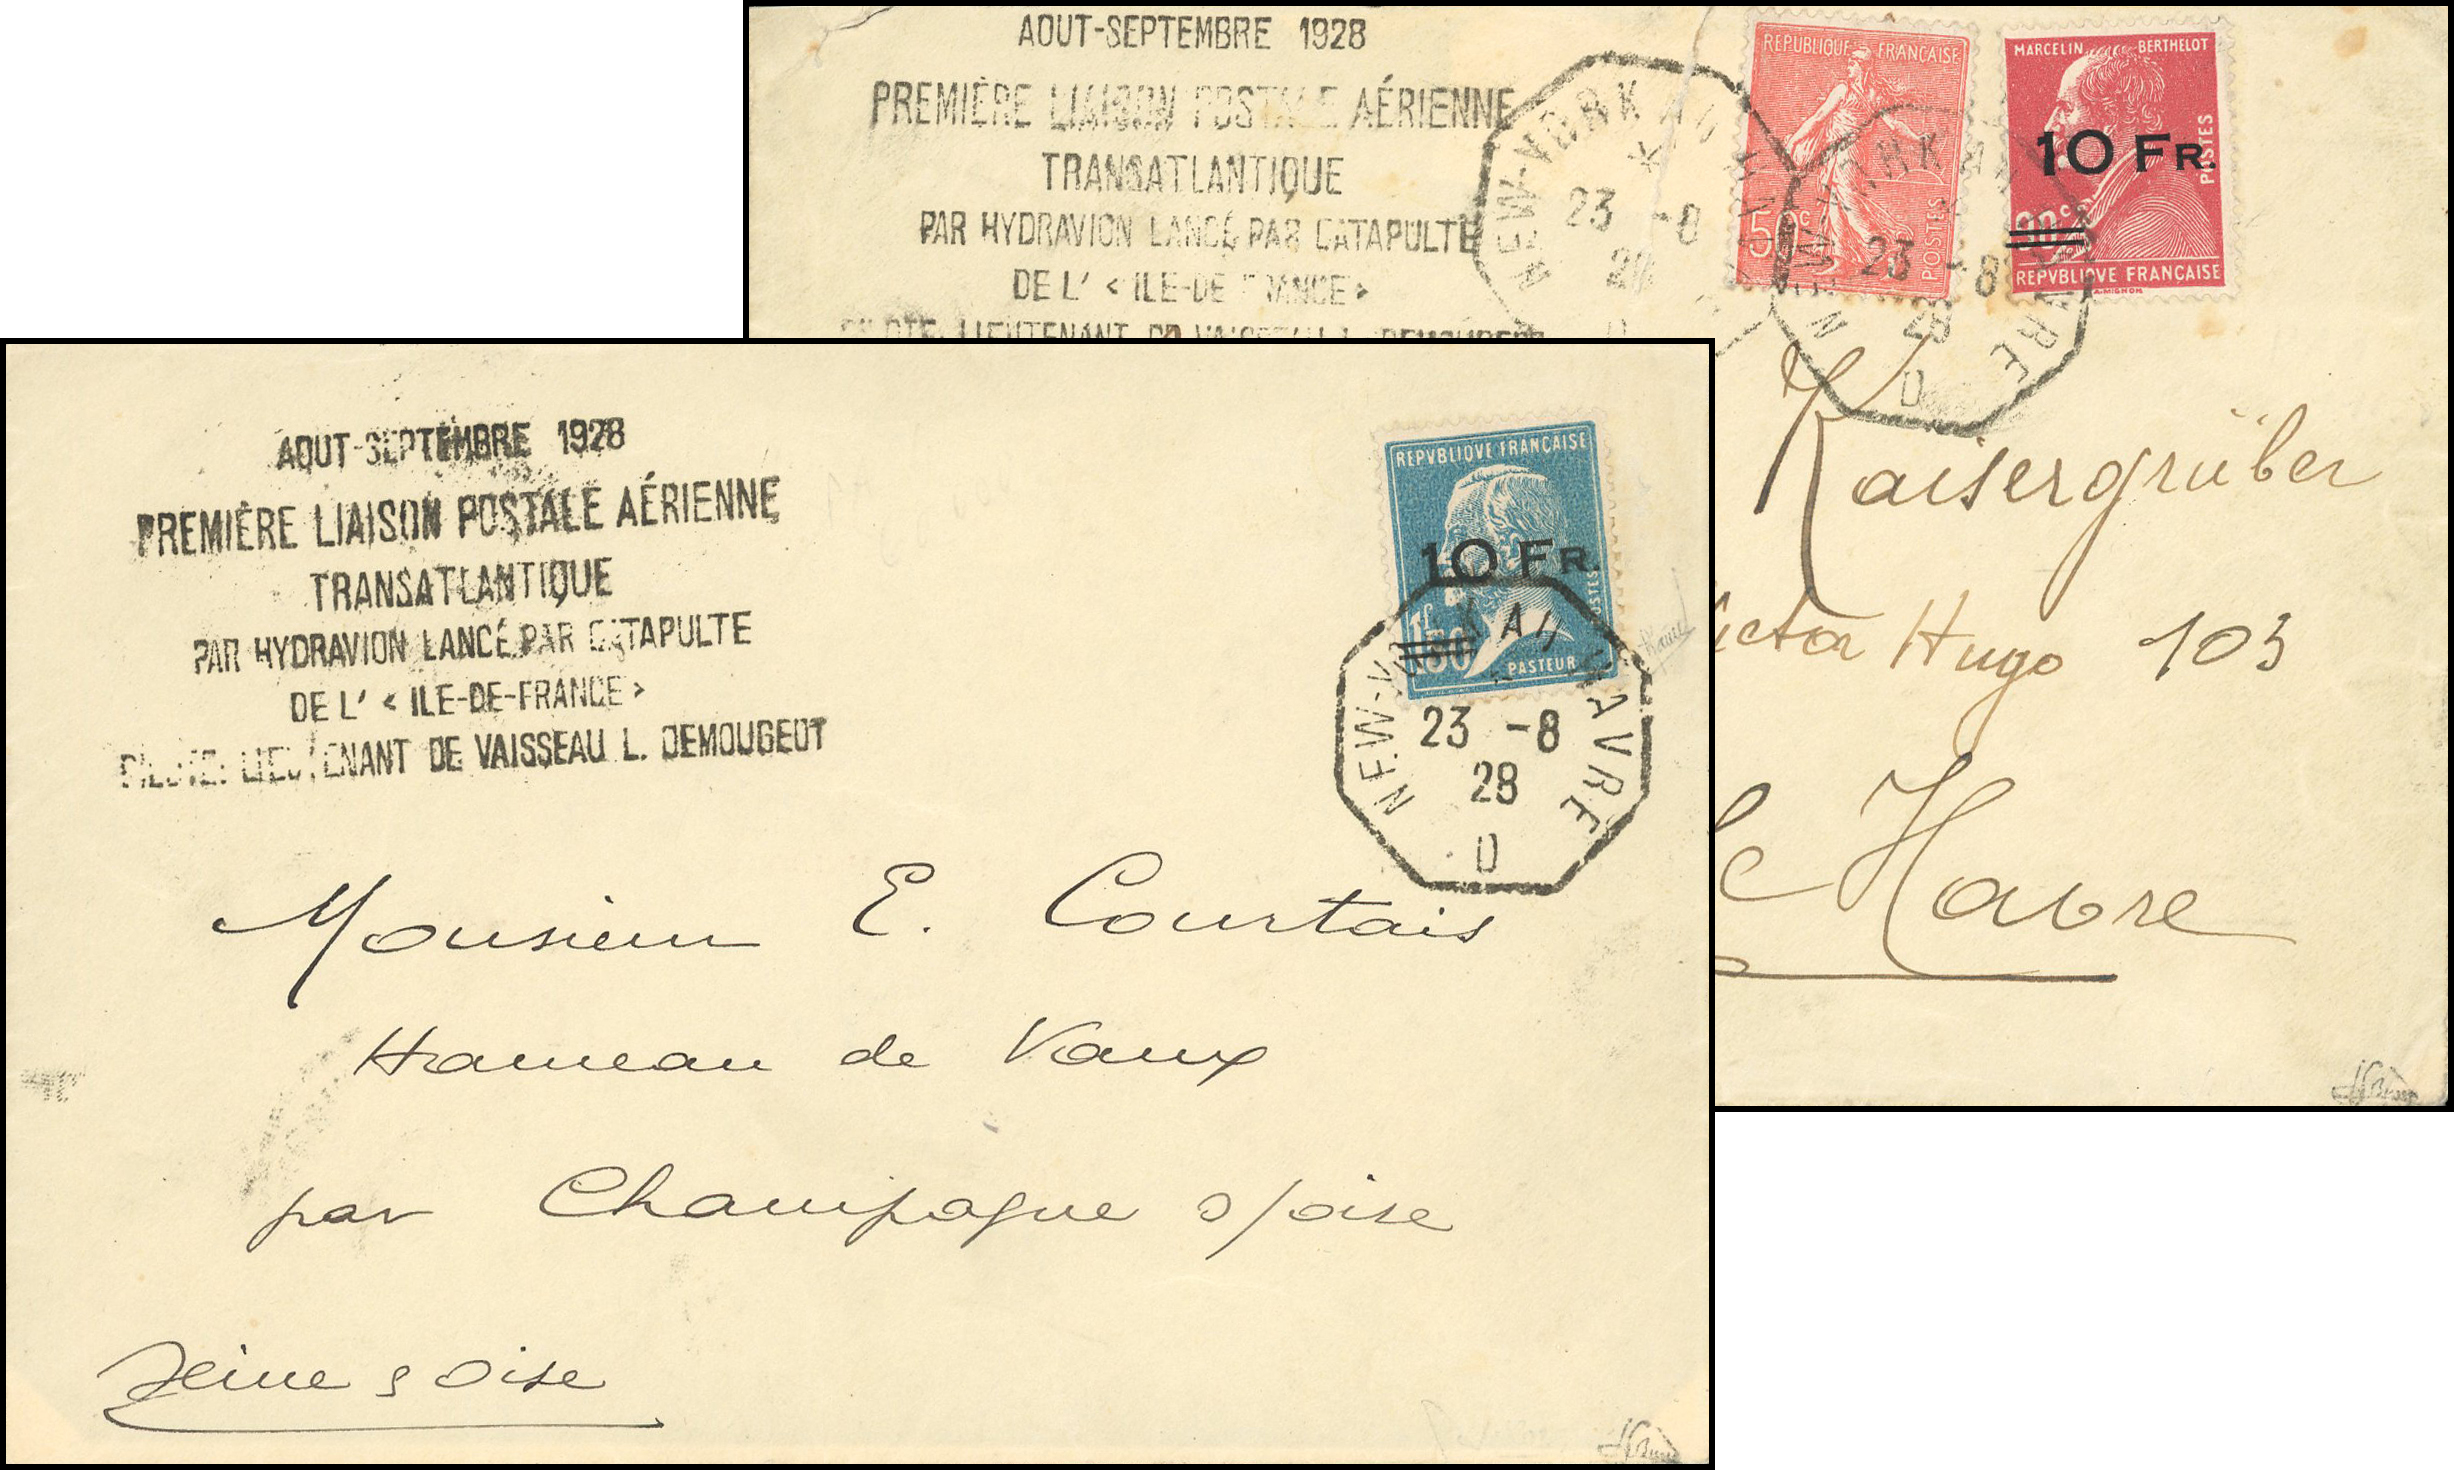 AOUT-SEPTEMBRE 1928
PREMIÈRE LIAISON POSTALE AÉRIENNE
TRANSATLANTIQUE
PAR HYDRAVION LANCÉ PAR CATAPULTE
DE L' < ILE-DE-FRANCE >
PILOTE: LIEUTENANT DE VAISSEAU L. DEMOUGEOT
NEW-YORK AU HAVRE
23 -8
28
D
REPUBLIQUE FRANÇAISE
50c
POSTES
NEW-YORK AU HAVRE
23 -8
28
D
MARCELIN BERTHELOT
10 FR.
90c
POSTES
REPVBLIQVE FRANÇAISE
A.MIGNON
Kaisergrüber
ictor Hugo 103
le Havre
AOUT-SEPTEMBRE 1928
PREMIÈRE LIAISON POSTALE AÉRIENNE
TRANSATLANTIQUE
PAR HYDRAVION LANCÉ PAR CATAPULTE
DE L' < ILE-DE-FRANCE >
PILOTE: LIEUTENANT DE VAISSEAU L. DEMOUGEOT
REPVBLIQVE FRANÇAISE
10 FR.
1f50
POSTES
PASTEUR
NEW-YORK AU HAVRE
23 -8
28
D
Monsieur E. Courtais
Hameau de Vaux
par Champagne s/oise
Seine & Oise